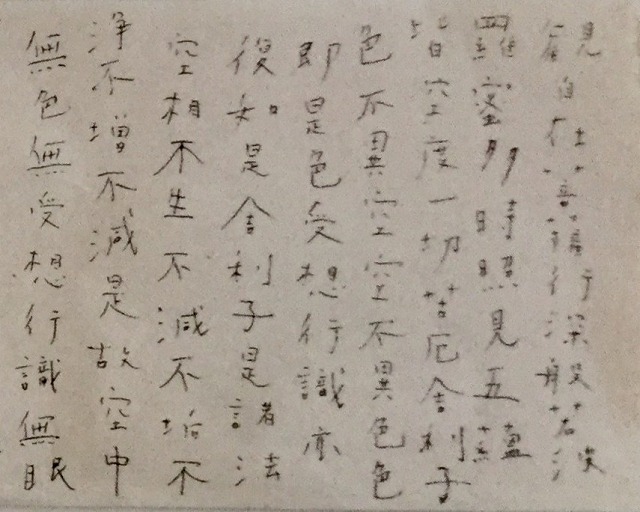 觀自在菩薩行深般若波
羅蜜多時照見五蘊
皆空度一切苦厄舍利子
色不異空空不異色色
即是色受想行識亦
復如是舍利子是諸法
空相不生不滅不垢不
淨不增不減是故空中
無色無受想行識無眼